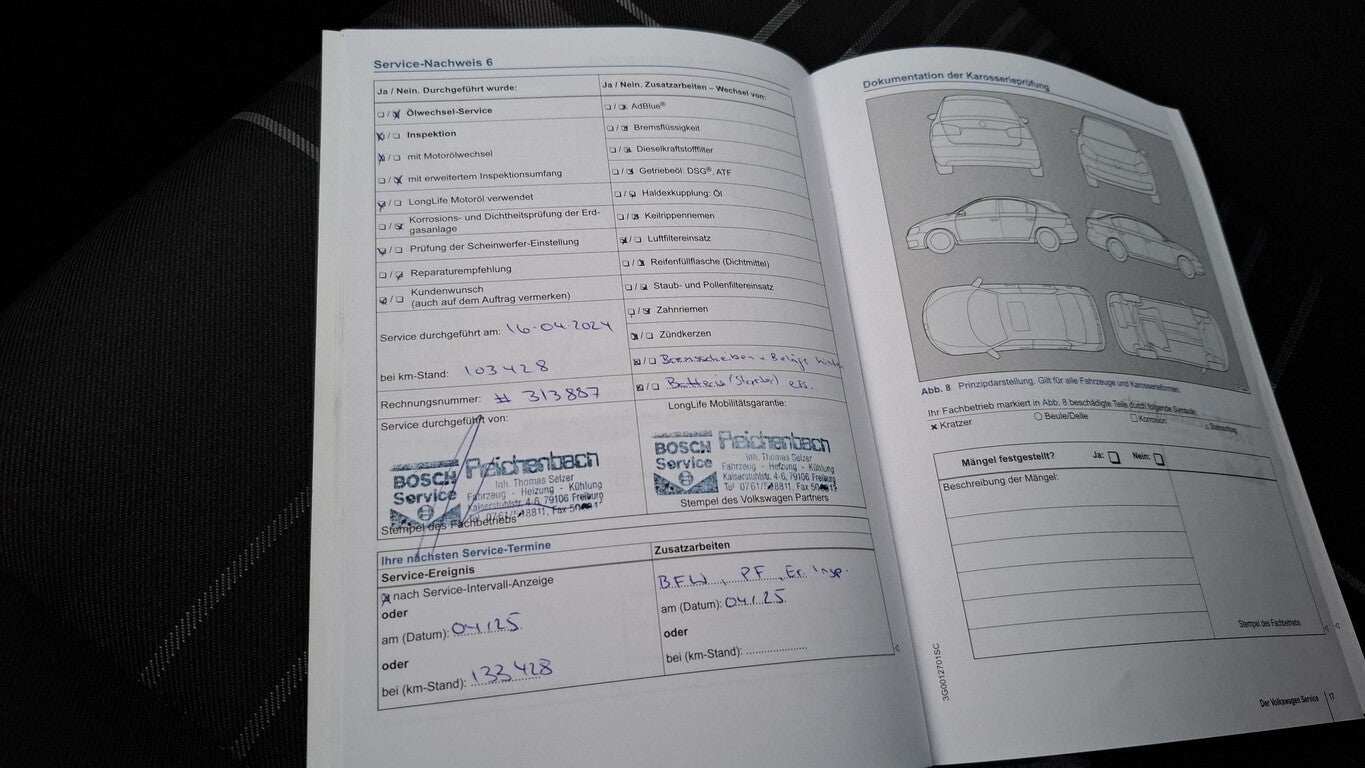 Service-Nachweis 6
Ja / Nein. Durchgeführt wurde:
Ölwechsel-Service
Inspektion
mit Motorölwechsel
mit erweitertem Inspektionsumfang
LongLife Motoröl verwendet
Korrosions- und Dichtheitsprüfung der Erd-
gasanlage
Prüfung der Scheinwerfer-Einstellung
Reparaturempfehlung
Kundenwunsch
(auch auf dem Auftrag vermerken)
Service durchgeführt am: 16.04.2024
bei km-Stand: 103428
Rechnungsnummer: # 313887
Service durchgeführt von:
BOSCH
Service
Reichenbach
Inh. Thomas Selzer
Fahrzeug - Heizung - Kühlung
Kaiserstuhlstr. 4-6, 79106 Freiburg
Stempel des Fachbetriebs
Ja / Nein. Zusatzarbeiten – Wechsel von:
AdBlue®
Bremsflüssigkeit
Dieselkraftstofffilter
Getriebeöl: DSG®, ATF
Haldexkupplung: Öl
Keilrippenriemen
Luftfiltereinsatz
Reifenfüllflasche (Dichtmittel)
Staub- und Pollenfiltereinsatz
Zahnriemen
Zündkerzen
Bremsscheiben + Beläge
Batterie (Starter) ers.
LongLife Mobilitätsgarantie:
BOSCH
Service
Reichenbach
Inh. Thomas Selzer
Fahrzeug - Heizung - Kühlung
Kaiserstuhlstr. 4-6, 79106 Freiburg
Stempel des Volkswagen Partners
Ihre nächsten Service-Termine
Service-Ereignis
nach Service-Intervall-Anzeige
oder
am (Datum): 04/25
oder
bei (km-Stand): 133428
Zusatzarbeiten
BFW, PF, Er. Insp.
am (Datum): 04/25
oder
bei (km-Stand):
Dokumentation der Karosserieprüfung
Abb. 8 Prinzipdarstellung. Gilt für alle Fahrzeuge und Karosserieformen.
Ihr Fachbetrieb markiert in Abb. 8 beschädigte Teile durch folgende Symbole:
Kratzer
Beule/Delle
Korrosion
Steinschlag
Mängel festgestellt? Ja: Nein:
Beschreibung der Mängel:
Stempel des Fachbetriebs
3G0012701SC
Der Volkswagen Service 17